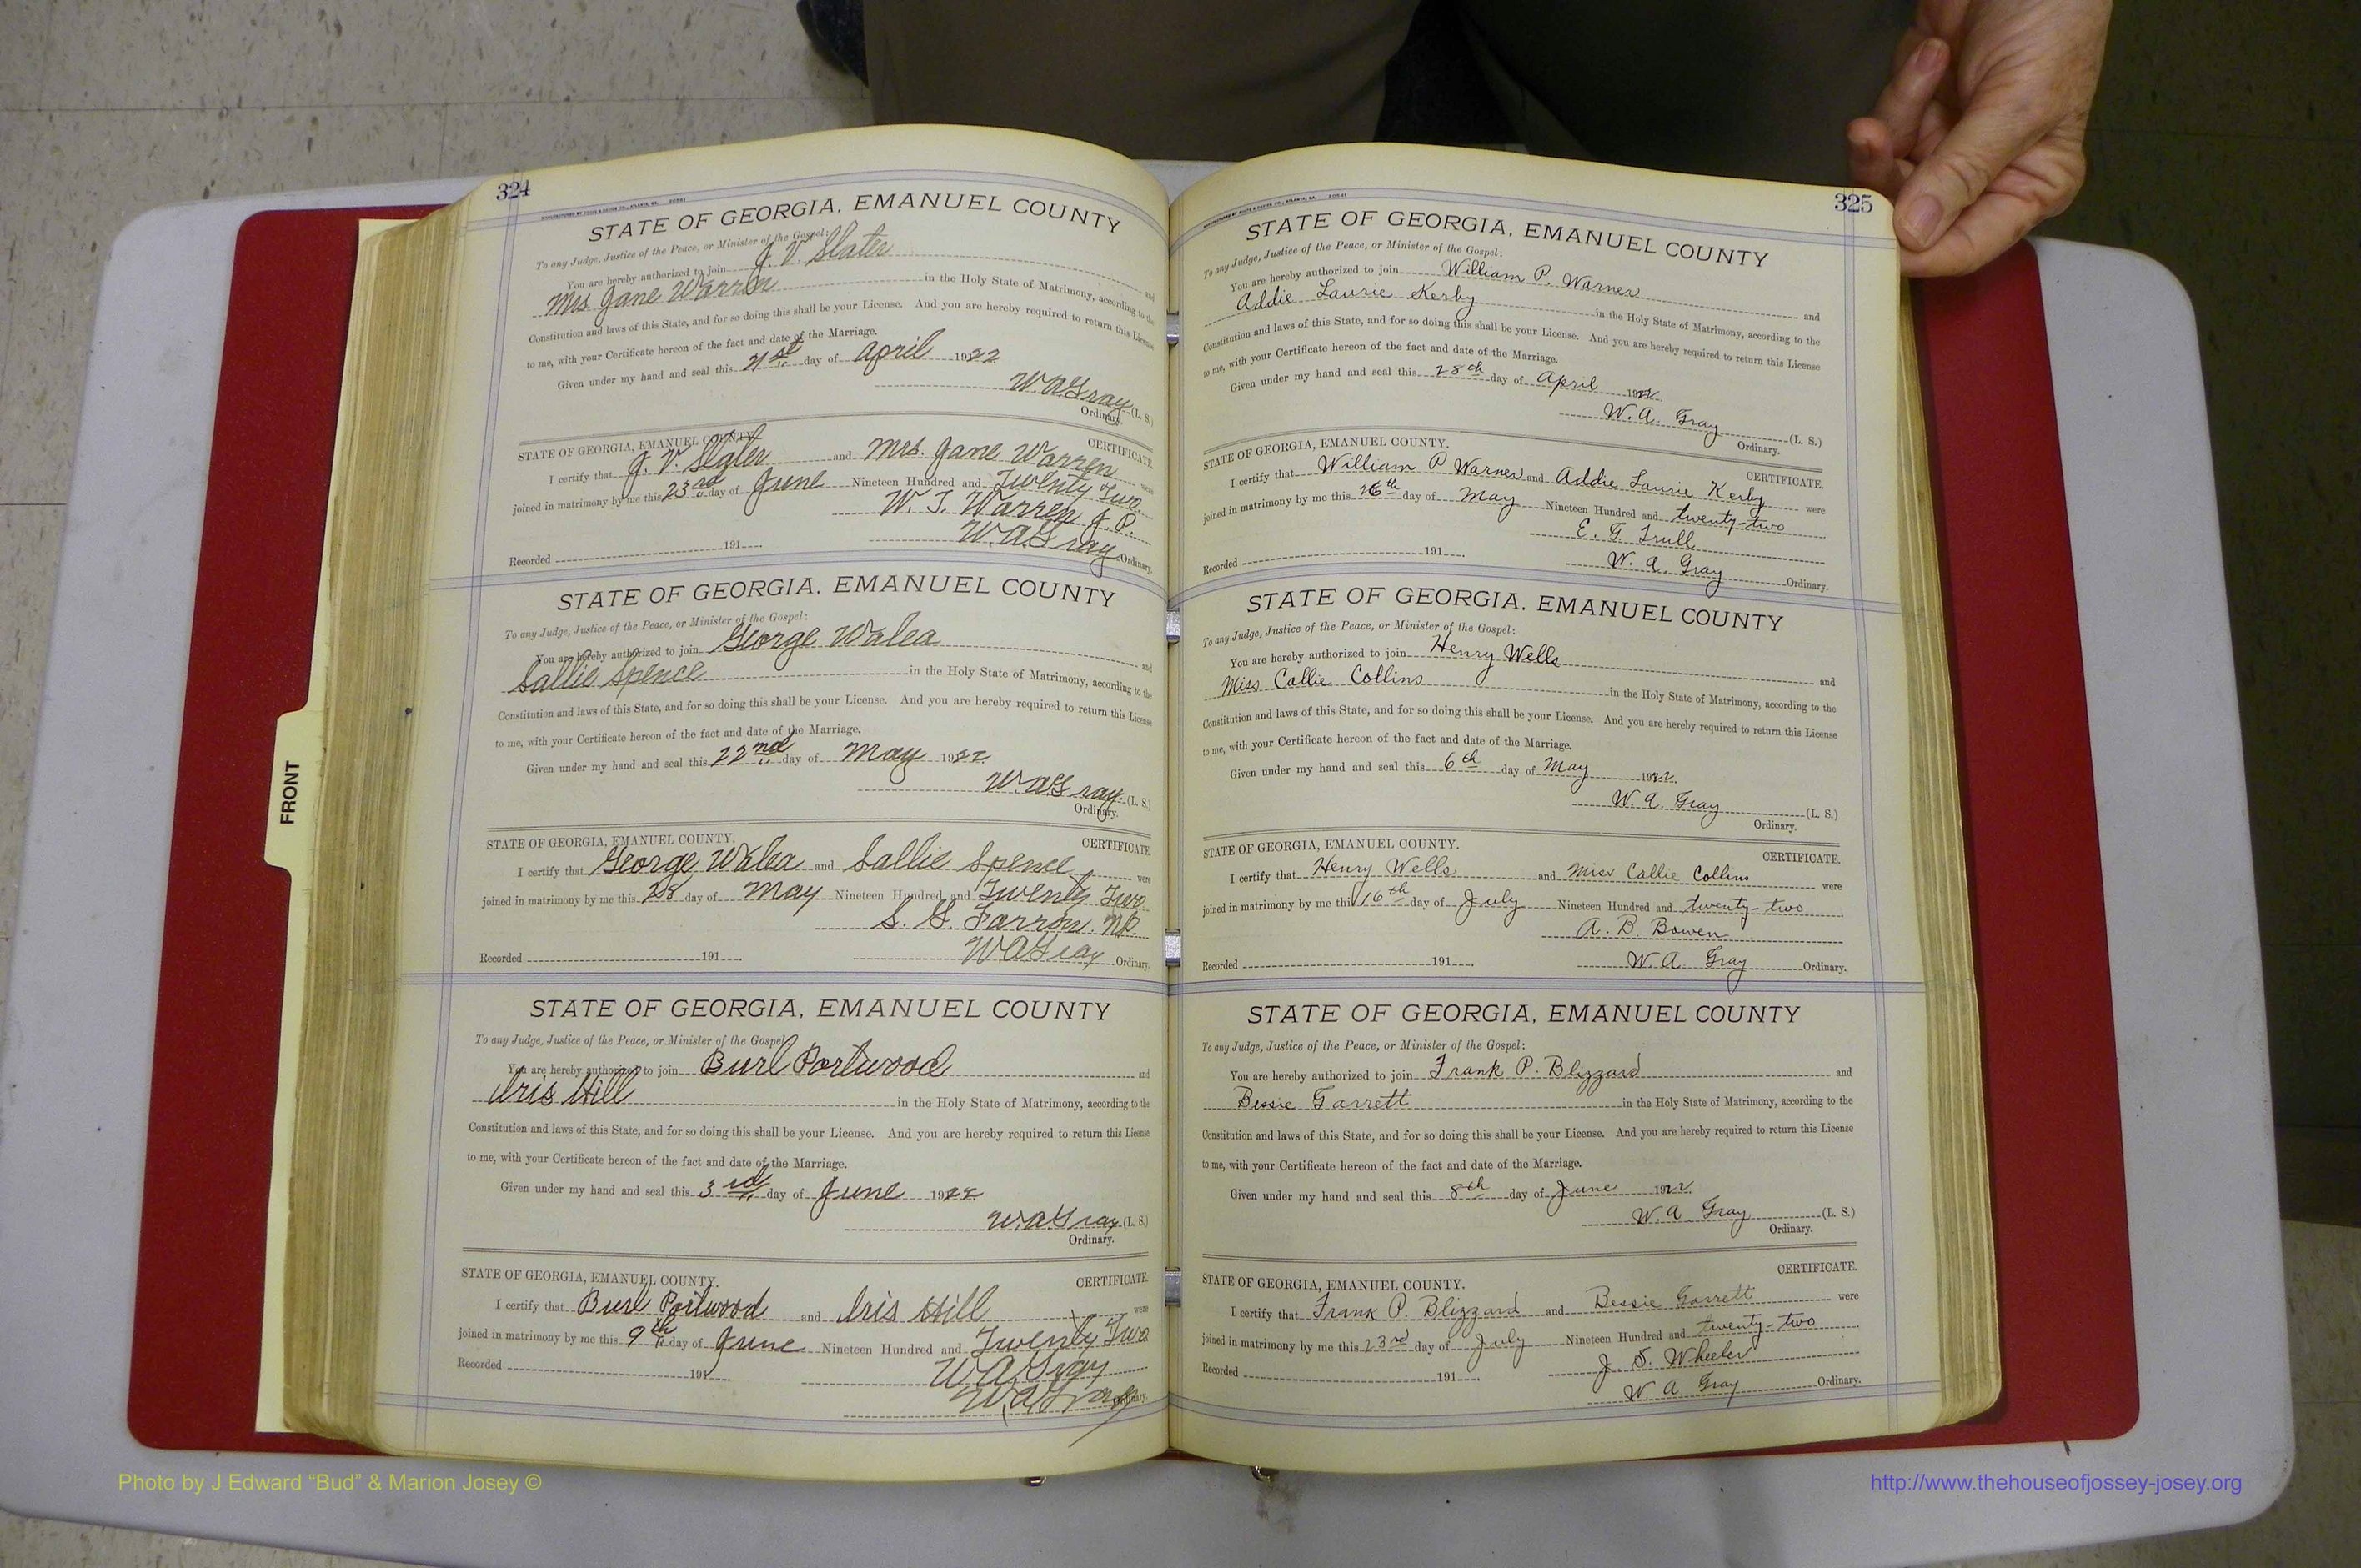 324
STATE OF GEORGIA, EMANUEL COUNTY
To any Judge, Justice of the Peace, or Minister of the Gospel:
You are hereby authorized to join J. V. Slater and
Mrs Jane Warren in the Holy State of Matrimony, according to the
Constitution and laws of this State, and for so doing this shall be your License. And you are hereby required to return this License
to me, with your Certificate hereon of the fact and date of the Marriage.
Given under my hand and seal this 21st day of April 1922
W. A. Gray (L. S.)
Ordinary.
STATE OF GEORGIA, EMANUEL COUNTY. CERTIFICATE
I certify that J. V. Slater and Mrs. Jane Warren were
joined in matrimony by me this 23rd day of June Nineteen Hundred and Twenty Two
W. J. Warren J. P.
Recorded 191 W. A. Gray Ordinary.
STATE OF GEORGIA, EMANUEL COUNTY
To any Judge, Justice of the Peace, or Minister of the Gospel:
You are hereby authorized to join George Walea and
Sallie Spence in the Holy State of Matrimony, according to the
Constitution and laws of this State, and for so doing this shall be your License. And you are hereby required to return this License
to me, with your Certificate hereon of the fact and date of the Marriage.
Given under my hand and seal this 22nd day of May 1922
W. A. Gray (L. S.)
Ordinary.
STATE OF GEORGIA, EMANUEL COUNTY. CERTIFICATE
I certify that George Walea and Sallie Spence were
joined in matrimony by me this 28 day of May Nineteen Hundred and Twenty Two
S. G. Farron.
Recorded 191 W A Gray Ordinary.
STATE OF GEORGIA, EMANUEL COUNTY
To any Judge, Justice of the Peace, or Minister of the Gospel
You are hereby authorized to join Burl Portwood and
Iris Hill in the Holy State of Matrimony, according to the
Constitution and laws of this State, and for so doing this shall be your License. And you are hereby required to return this License
to me, with your Certificate hereon of the fact and date of the Marriage.
Given under my hand and seal this 3rd day of June 1922
W. A. Gray (L. S.)
Ordinary.
STATE OF GEORGIA, EMANUEL COUNTY. CERTIFICATE
I certify that Burl Portwood and Iris Hill were
joined in matrimony by me this 9th day of June Nineteen Hundred and Twenty Two
Recorded 191 W A Gray
W. A. Gray Ordinary.
325
STATE OF GEORGIA, EMANUEL COUNTY
To any Judge, Justice of the Peace, or Minister of the Gospel:
You are hereby authorized to join William P. Warner and
Addie Laurie Kerby in the Holy State of Matrimony, according to the
Constitution and laws of this State, and for so doing this shall be your License. And you are hereby required to return this License
to me, with your Certificate hereon of the fact and date of the Marriage.
Given under my hand and seal this 28th day of April 1922
W. A. Gray (L. S.)
Ordinary.
STATE OF GEORGIA, EMANUEL COUNTY. CERTIFICATE.
I certify that William P Warner and Addie Laurie Kerby were
joined in matrimony by me this 16th day of May Nineteen Hundred and twenty-two
E. F. Trull
Recorded 191 W. A. Gray Ordinary.
STATE OF GEORGIA, EMANUEL COUNTY
To any Judge, Justice of the Peace, or Minister of the Gospel:
You are hereby authorized to join Henry Wells and
Miss Callie Collins in the Holy State of Matrimony, according to the
Constitution and laws of this State, and for so doing this shall be your License. And you are hereby required to return this License
to me, with your Certificate hereon of the fact and date of the Marriage.
Given under my hand and seal this 6th day of May 1922
W. A. Gray (L. S.)
Ordinary.
STATE OF GEORGIA, EMANUEL COUNTY. CERTIFICATE.
I certify that Henry Wells and Miss Callie Collins were
joined in matrimony by me this 16th day of July Nineteen Hundred and twenty-two
A. B. Bowen
Recorded 191 W. A. Gray Ordinary.
STATE OF GEORGIA, EMANUEL COUNTY
To any Judge, Justice of the Peace, or Minister of the Gospel:
You are hereby authorized to join Frank P. Blizzard and
Bessie Garrett in the Holy State of Matrimony, according to the
Constitution and laws of this State, and for so doing this shall be your License. And you are hereby required to return this License
to me, with your Certificate hereon of the fact and date of the Marriage.
Given under my hand and seal this 8th day of June 1922
W. A. Gray (L. S.)
Ordinary.
STATE OF GEORGIA, EMANUEL COUNTY. CERTIFICATE.
I certify that Frank P. Blizzard and Bessie Garrett were
joined in matrimony by me this 23rd day of July Nineteen Hundred and twenty-two
J. S. Wheeler
Recorded 191 W A Gray Ordinary.
FRONT
Photo by J Edward “Bud” & Marion Josey ©
http://www.thehouseofjossey-josey.org